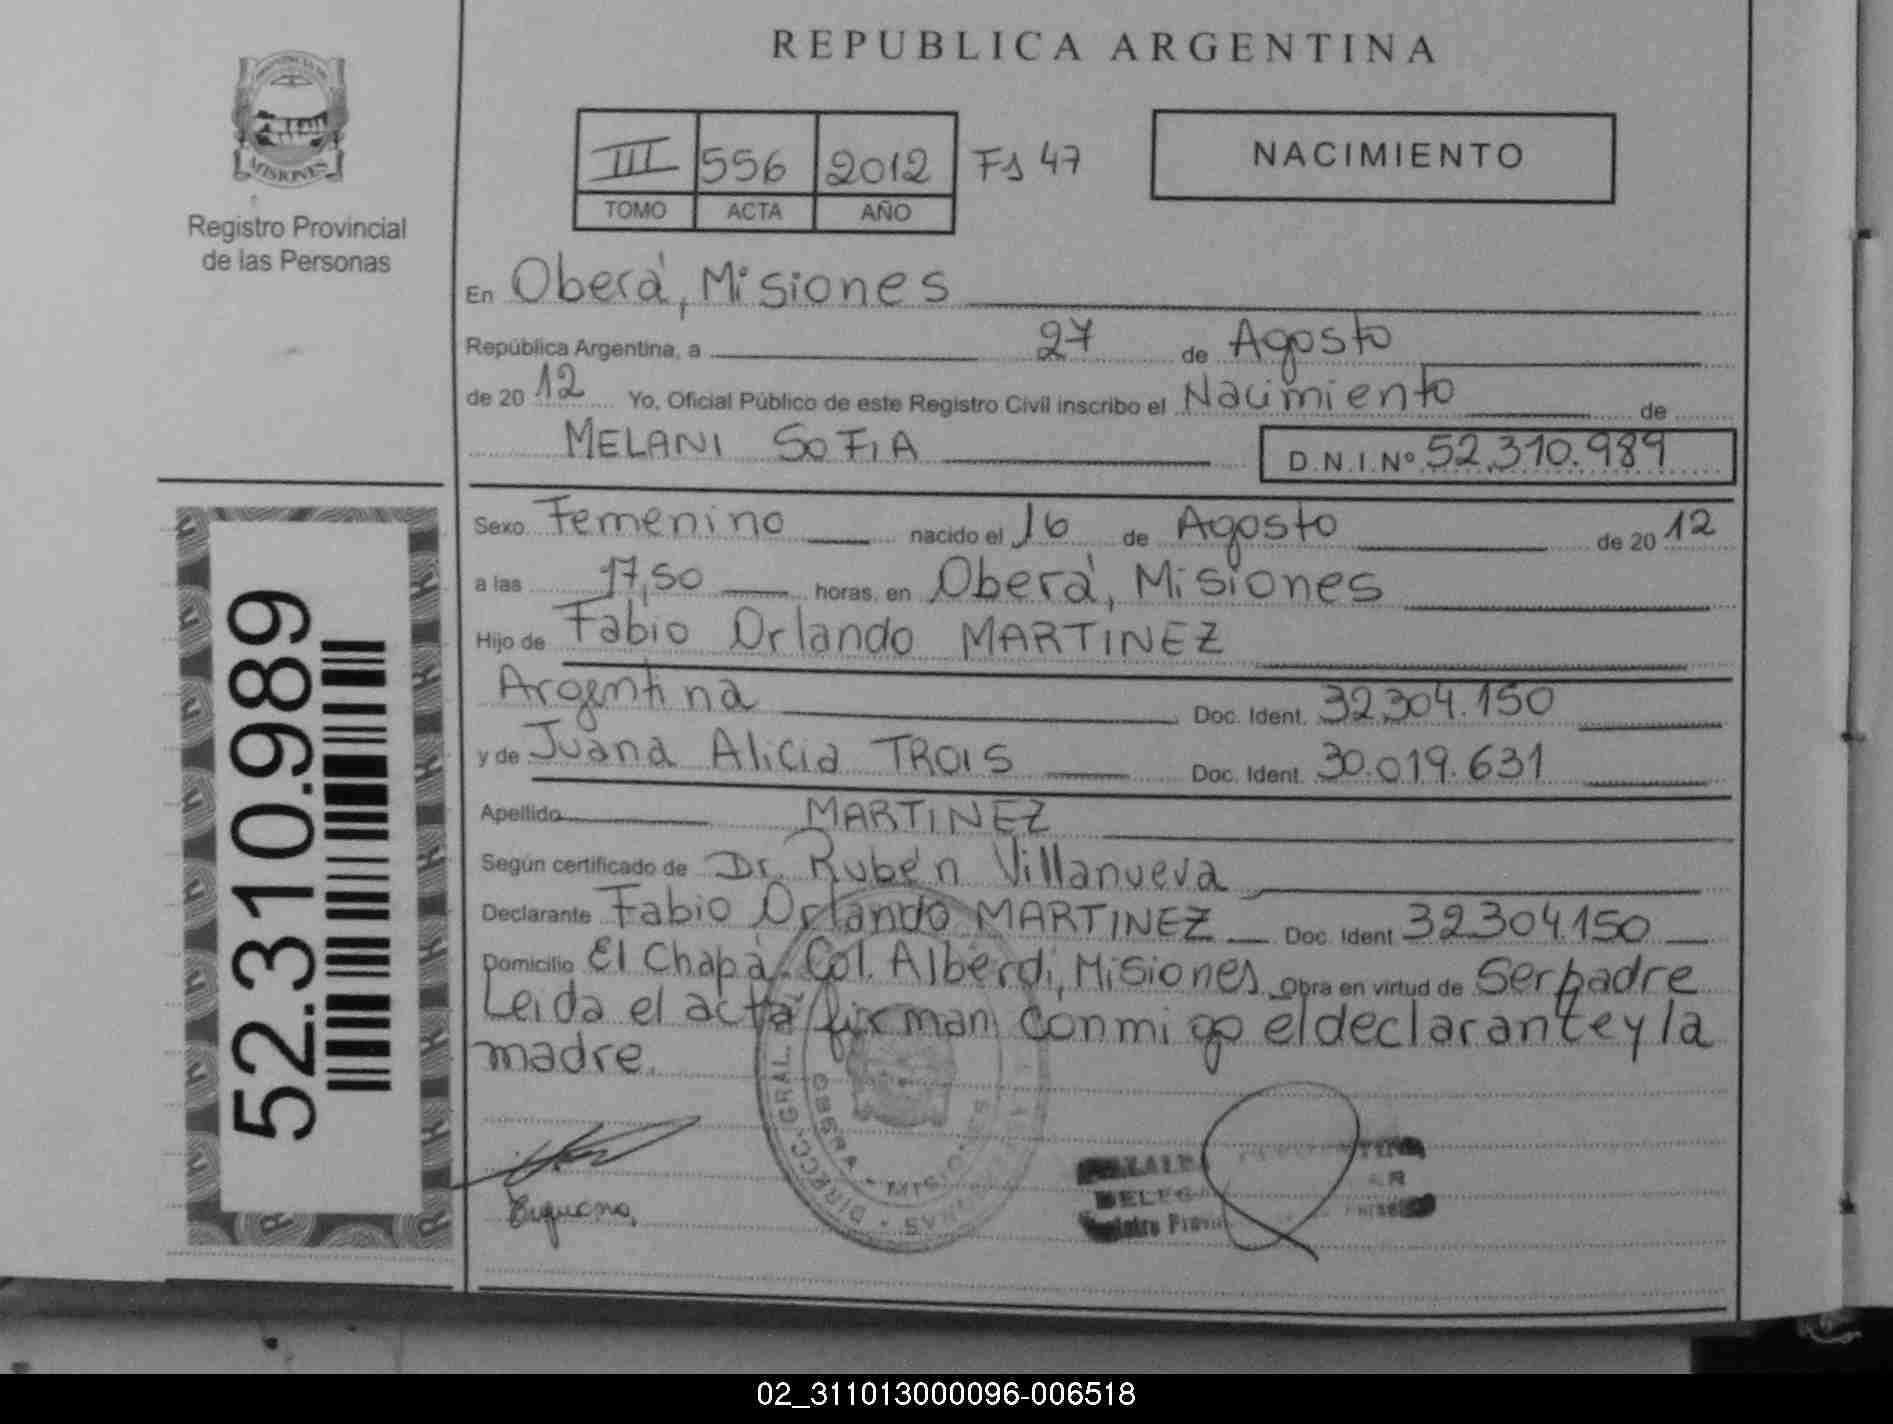 REPUBLICA ARGENTINA
PROVINCIA DE
MISIONES
Registro Provincial
de las Personas
III 556 2012 Fs 47
TOMO ACTA AÑO
NACIMIENTO
En Oberá, Misiones
República Argentina, a 27 de Agosto
de 2012 Yo, Oficial Público de este Registro Civil inscribo el Nacimiento de
MELANI SOFIA D.N.I.Nº 52.310.989
Sexo Femenino nacido el 16 de Agosto de 2012
a las 17,50 horas, en Oberá, Misiones
Hijo de Fabio Orlando MARTINEZ
Argentina Doc. Ident. 32.304.150
y de Juana Alicia TROIS Doc. Ident. 30.019.631
Apellido MARTINEZ
Según certificado de Dr. Rubén Villanueva
Declarante Fabio Orlando MARTINEZ Doc. Ident 32.304.150
Domicilio El Chapá. Col. Alberdi, Misiones Obra en virtud de Ser padre
Leida el acta firman conmigo el declarante y la
madre.
52.310.989
DIRECC. GRAL.
OBERA • MISIONES
02_311013000096-006518